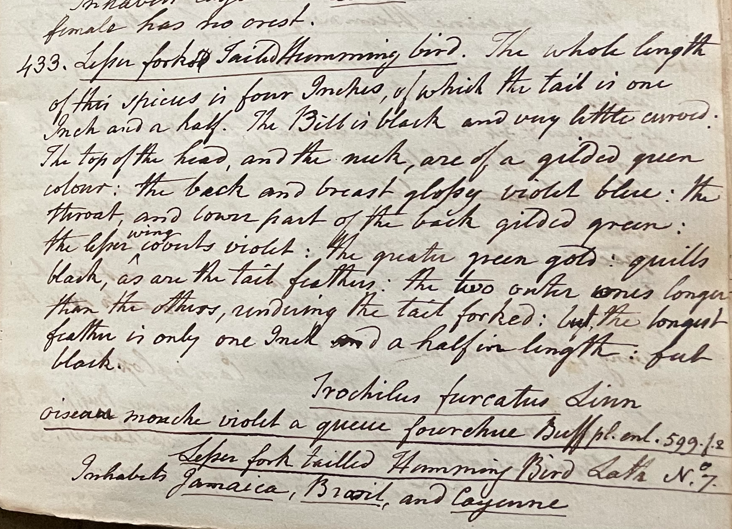 Inhabits
female has no crest.
433. Lesser forked Tailed Humming bird. The whole length
of this spicies is four Inches, of which the tail is one
Inch and a half. The Bill is black and very little curved:
The top of the head, and the neck, are of a gilded green
colour: the back and breast glossy violet blue: the
throat, and lower part of the back gilded green:
the lesser wing coverts violet: the greater green gold: quills
black, as are the tail feathers: the two outer ones longer
than the others, rendering the tail forked: but, the longest
feather is only one Inch and a half in length: feet
black.
Trochilus furcatus Linn
oiseau mouche violet a queue fourchue Buff pl. enl. 599. f. 2
Lesser fork tailled Humming Bird Lath N.º 7.
Inhabits Jamaica, Brasil, and Cayenne